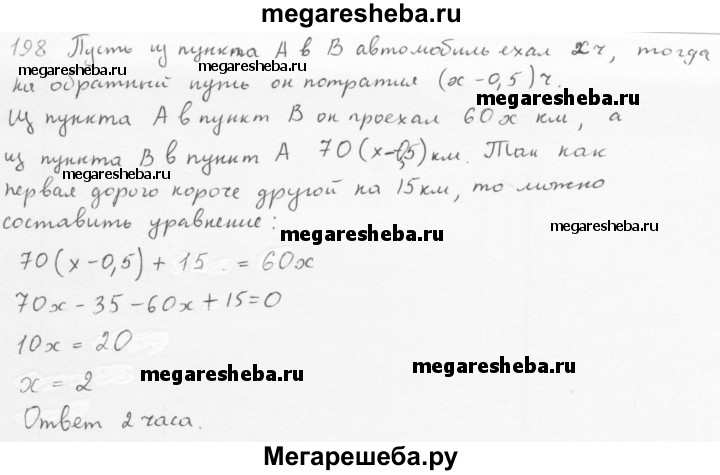 megaresheba.ru
198 Пусть из пункта А в В автомобиль ехал x ч, тогда
megaresheba.ru megaresheba.ru
на обратный путь он потратил (x-0,5) ч.
megaresheba.ru
Из пункта А в пункт В он проехал 60x км, а
из пункта В в пункт А 70(x-0,5) км. Так как
первая дорого короче другой на 15 км, то можно
составить уравнение:
megaresheba.ru megaresheba.ru
70(x-0,5) + 15 = 60x
70x - 35 - 60x + 15 = 0
10x = 20
x = 2
megaresheba.ru megaresheba.ru
Ответ 2 часа.
Мегарешеба.ру